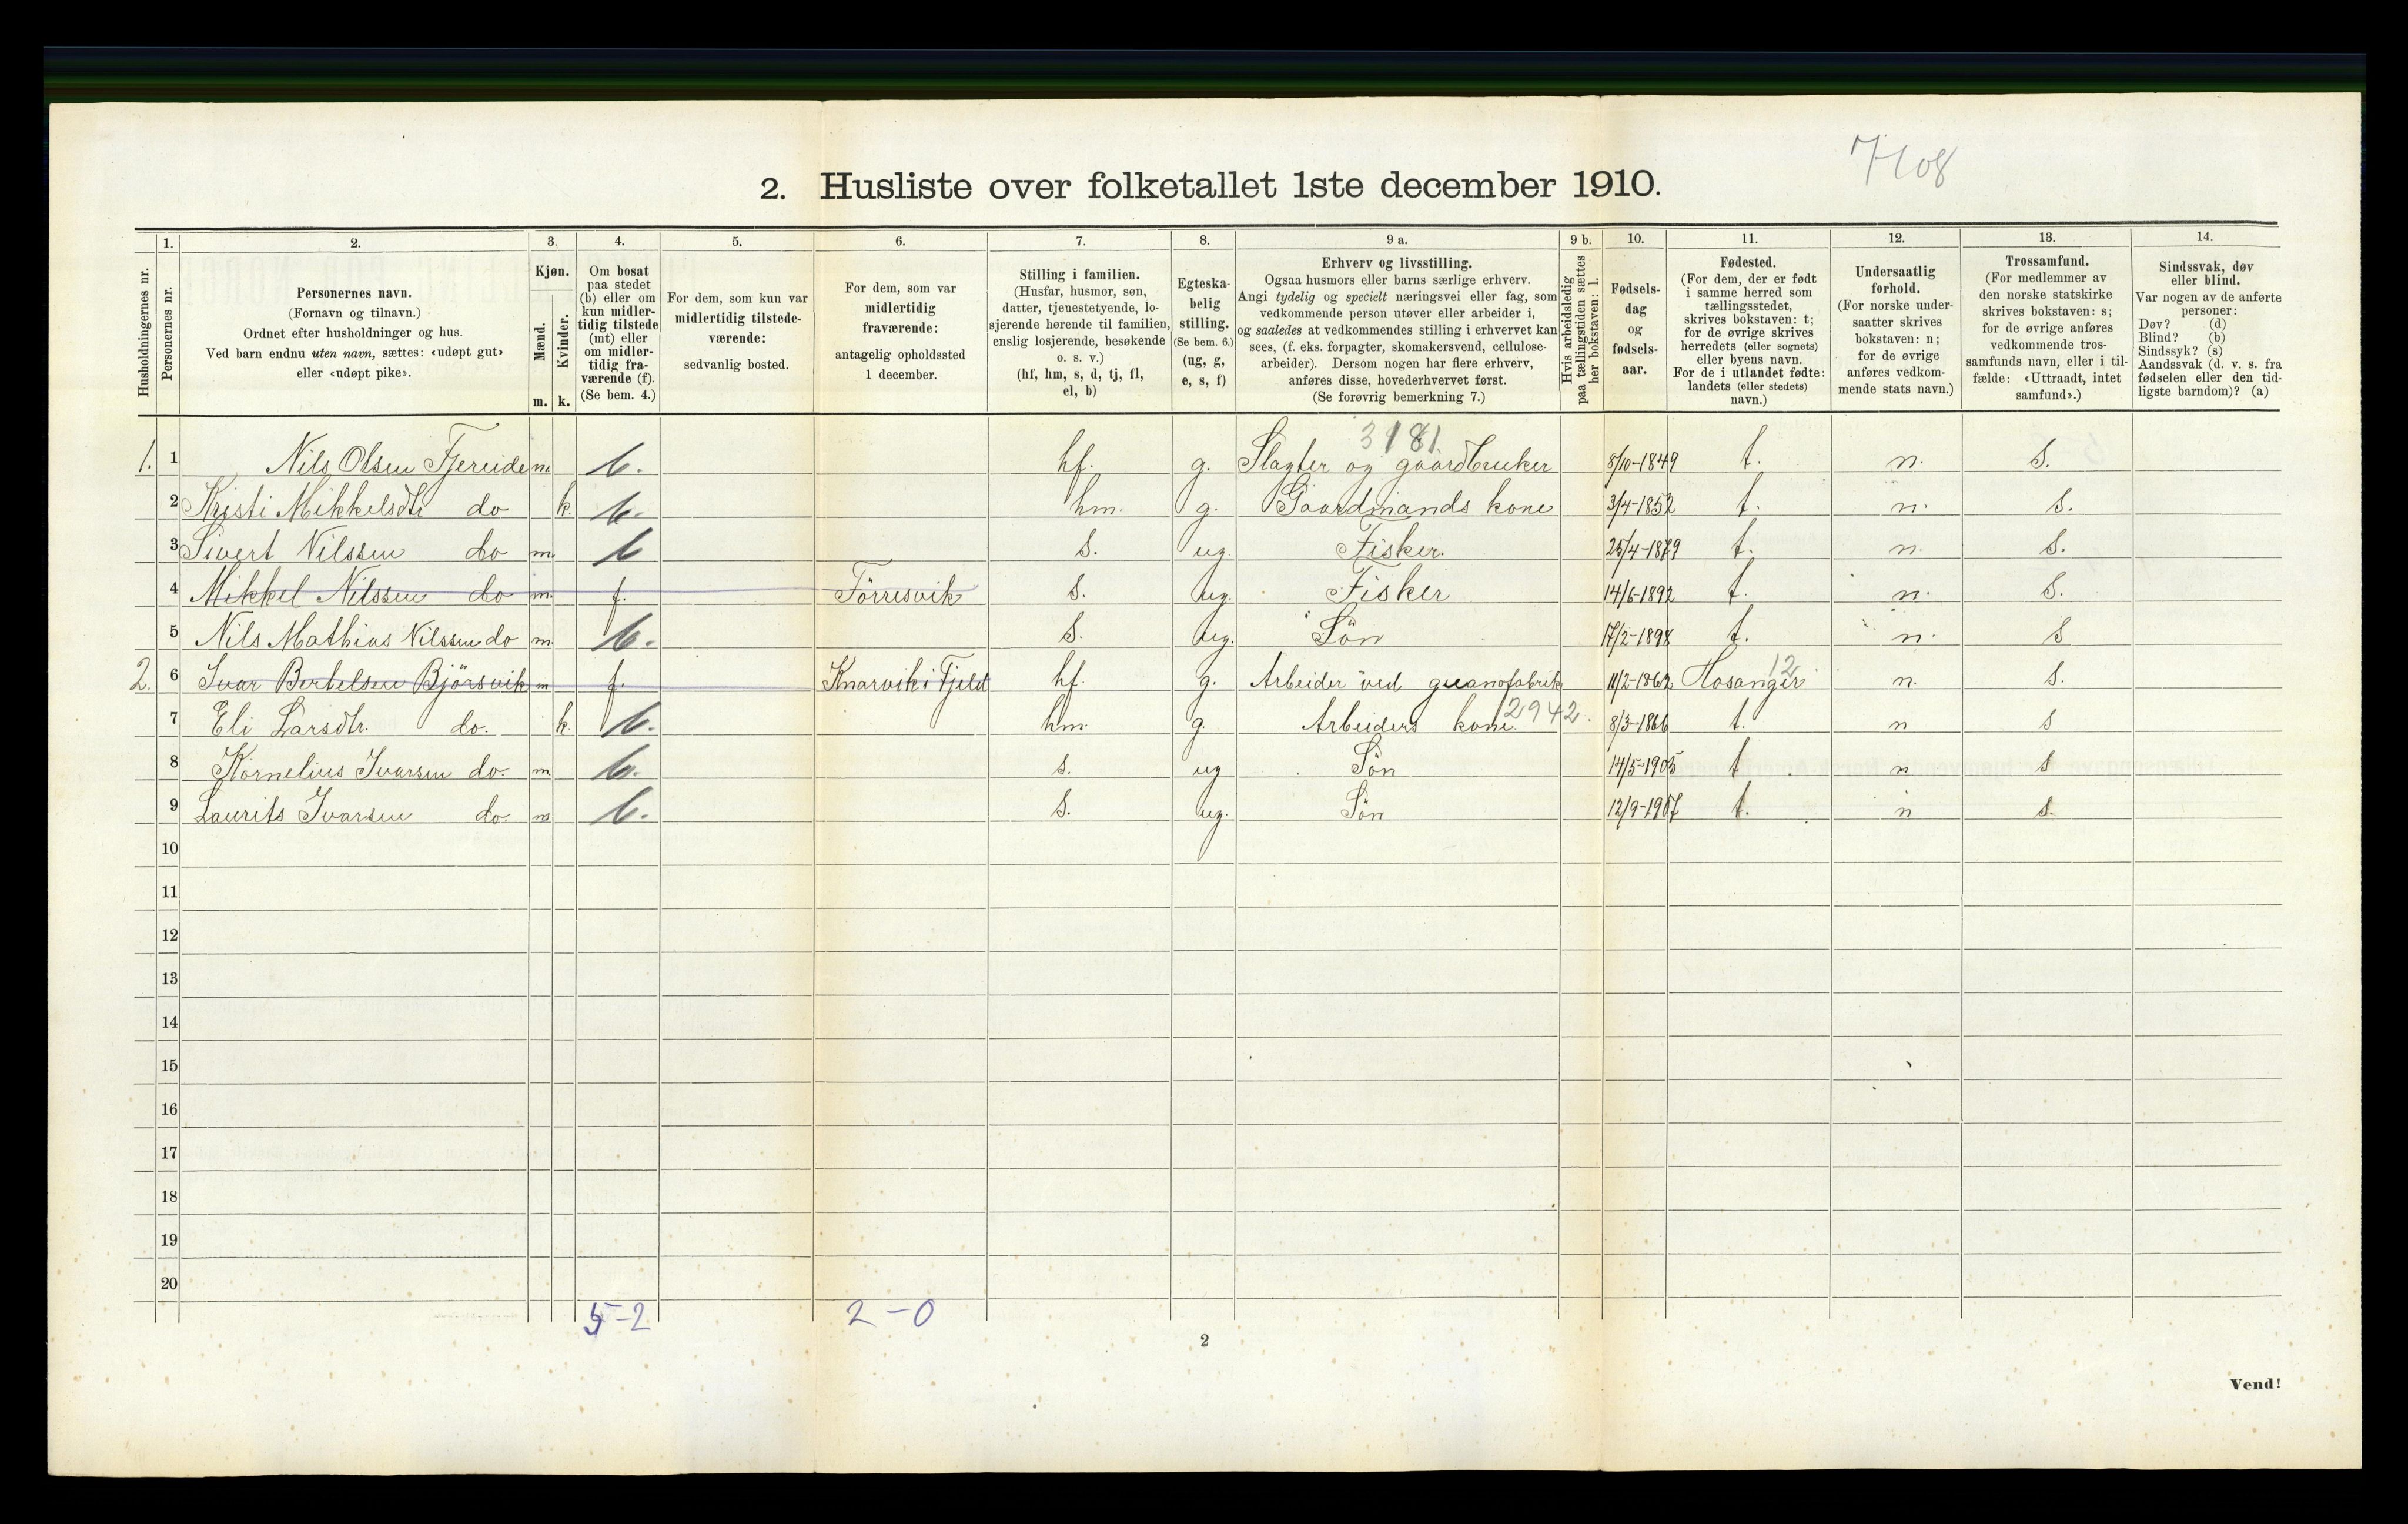 7108
2. Husliste over folketallet 1ste december 1910.
Husholdningernes nr.
1. Personernes nr.
2. Personernes navn. (Fornavn og tilnavn.) Ordnet efter husholdninger og hus. Ved barn endnu uten navn, sættes: «udøpt gut» eller «udøpt pike».
3. Kjøn. Mænd. m. Kvinder. k.
4. Om bosat paa stedet (b) eller om kun midlertidig tilstede (mt) eller om midlertidig fraværende (f). (Se bem. 4.)
5. For dem, som kun var midlertidig tilstedeværende: sedvanlig bosted.
6. For dem, som var midlertidig fraværende: antagelig opholdssted 1 december.
7. Stilling i familien. (Husfar, husmor, søn, datter, tjenestetyende, losjerende hørende til familien, enslig losjerende, besøkende o. s. v.) (hf, hm, s, d, tj, fl, el, b)
8. Egteskabelig stilling. (Se bem. 6.) (ug, g, e, s, f)
9 a. Erhverv og livsstilling. Ogsaa husmors eller barns særlige erhverv. Angi tydelig og specielt næringsvei eller fag, som vedkommende person utøver eller arbeider i, og saaledes at vedkommendes stilling i erhvervet kan sees, (f. eks. forpagter, skomakersvend, cellulosearbeider). Dersom nogen har flere erhverv, anføres disse, hovederhvervet først. (Se forøvrig bemerkning 7.)
9 b. Hvis arbeidsledig paa tællingstiden sættes her bokstaven: l.
10. Fødselsdag og fødselsaar.
11. Fødested. (For dem, der er født i samme herred som tællingsstedet, skrives bokstaven: t; for de øvrige skrives herredets (eller sognets) eller byens navn. For de i utlandet fødte: landets (eller stedets) navn.)
12. Undersaatlig forhold. (For norske undersaatter skrives bokstaven: n; for de øvrige anføres vedkommende stats navn.)
13. Trossamfund. (For medlemmer av den norske statskirke skrives bokstaven: s; for de øvrige anføres vedkommende trossamfunds navn, eller i tilfælde: «Uttraadt, intet samfund».)
14. Sindssvak, døv eller blind. Var nogen av de anførte personer: Døv? (d) Blind? (b) Sindssyk? (s) Aandssvak (d. v. s. fra fødselen eller den tidligste barndom)? (a)
3181
1. 1 Nils Olsen Fjereide m. b. hf. g. Slagter og gaardbruker 8/10-1849 t. n. s.
2 Kristi Mikkelsdtr do k. b. hm. g. Gaardmands kone 3/4-1852 t. n. s.
3 Sivert Nilssen do m. b s. ug. Fisker. 25/4-1879 t. n. s.
4 Mikkel Nilssen do m. f. Förresvik s. ug. Fisker 14/6-1892 t. n. s.
5 Nils Mathias Nilssen do m. b. s. ug. Sön 17/2-1898 t. n. s
2. 6 Ivar Bertelsen Björsvik m f. Knarvik i Fjeld hf. g. Arbeider ved guanofabrik 11/2-1862 Hosanger 12 n. s.
7 Eli Larsdtr. do. k. b. hm. g. Arbeiders kone. 2942. 8/3-1866 t. n s
8 Kornelius Ivarsen do. m. b. s. ug Sön 14/5-1905 t n s
9 Laurits Ivarsen do. m b. s. ug. Sön 12/9-1907 t. n s.
10
11
12
13
14
15
16
17
18
19
20
5-2 2-0
2
Vend!